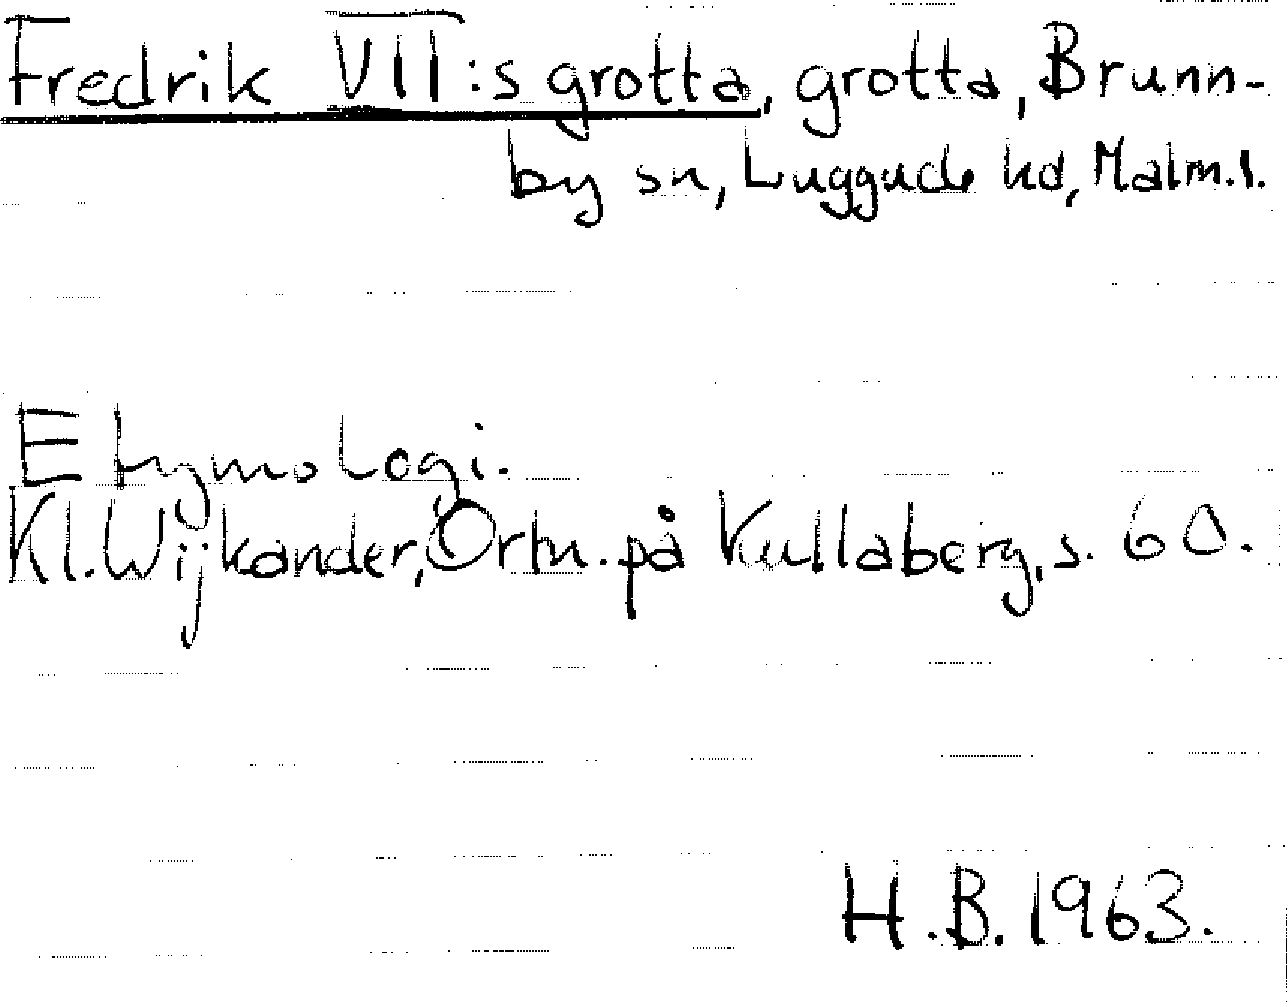 Fredrik VII:s grotta, grotta, Brunn-
by sn, Luggude hd, Malm.l.
Etymologi.
Kl. Wijkander, Ortn. på Kullaberg, s. 60.
H.B. 1963.